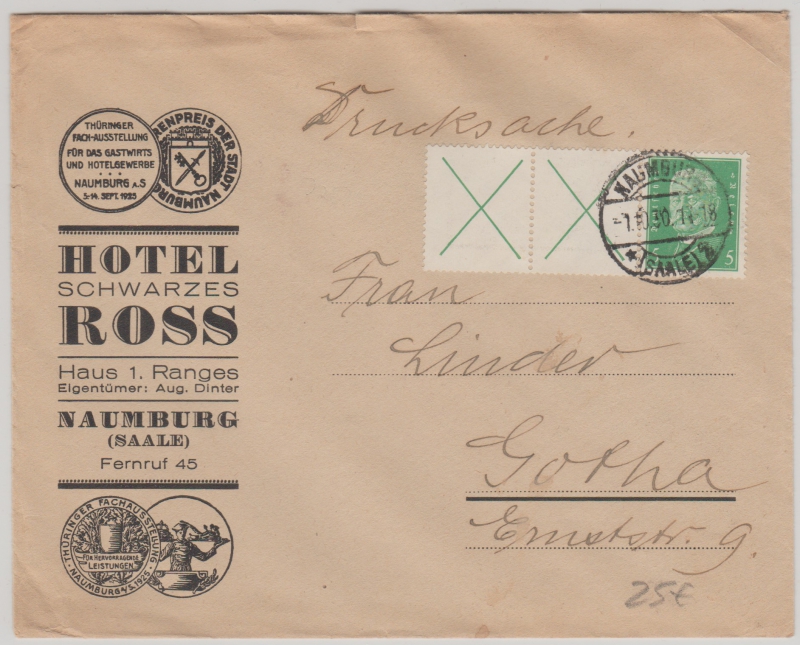 THÜRINGER
FACH-AUSSTELLUNG
FÜR DAS GASTWIRTS
UND HOTELGEWERBE
NAUMBURG A.S
3-14. SEPT. 1925
RENPREIS DER STADT NAUMBURG
HOTEL
SCHWARZES
ROSS
Haus 1. Ranges
Eigentümer: Aug. Dinter
NAUMBURG
(SAALE)
Fernruf 45
THÜRINGER FACHAUSSTELLUNG
FÜR HERVORRAGENDE
LEISTUNGEN
NAUMBURG A/S. 1925
Drucksache.
NAUMBU
(SAALE) 2
5
Frau
Linder
Gotha
Ernststr. 9.
25€